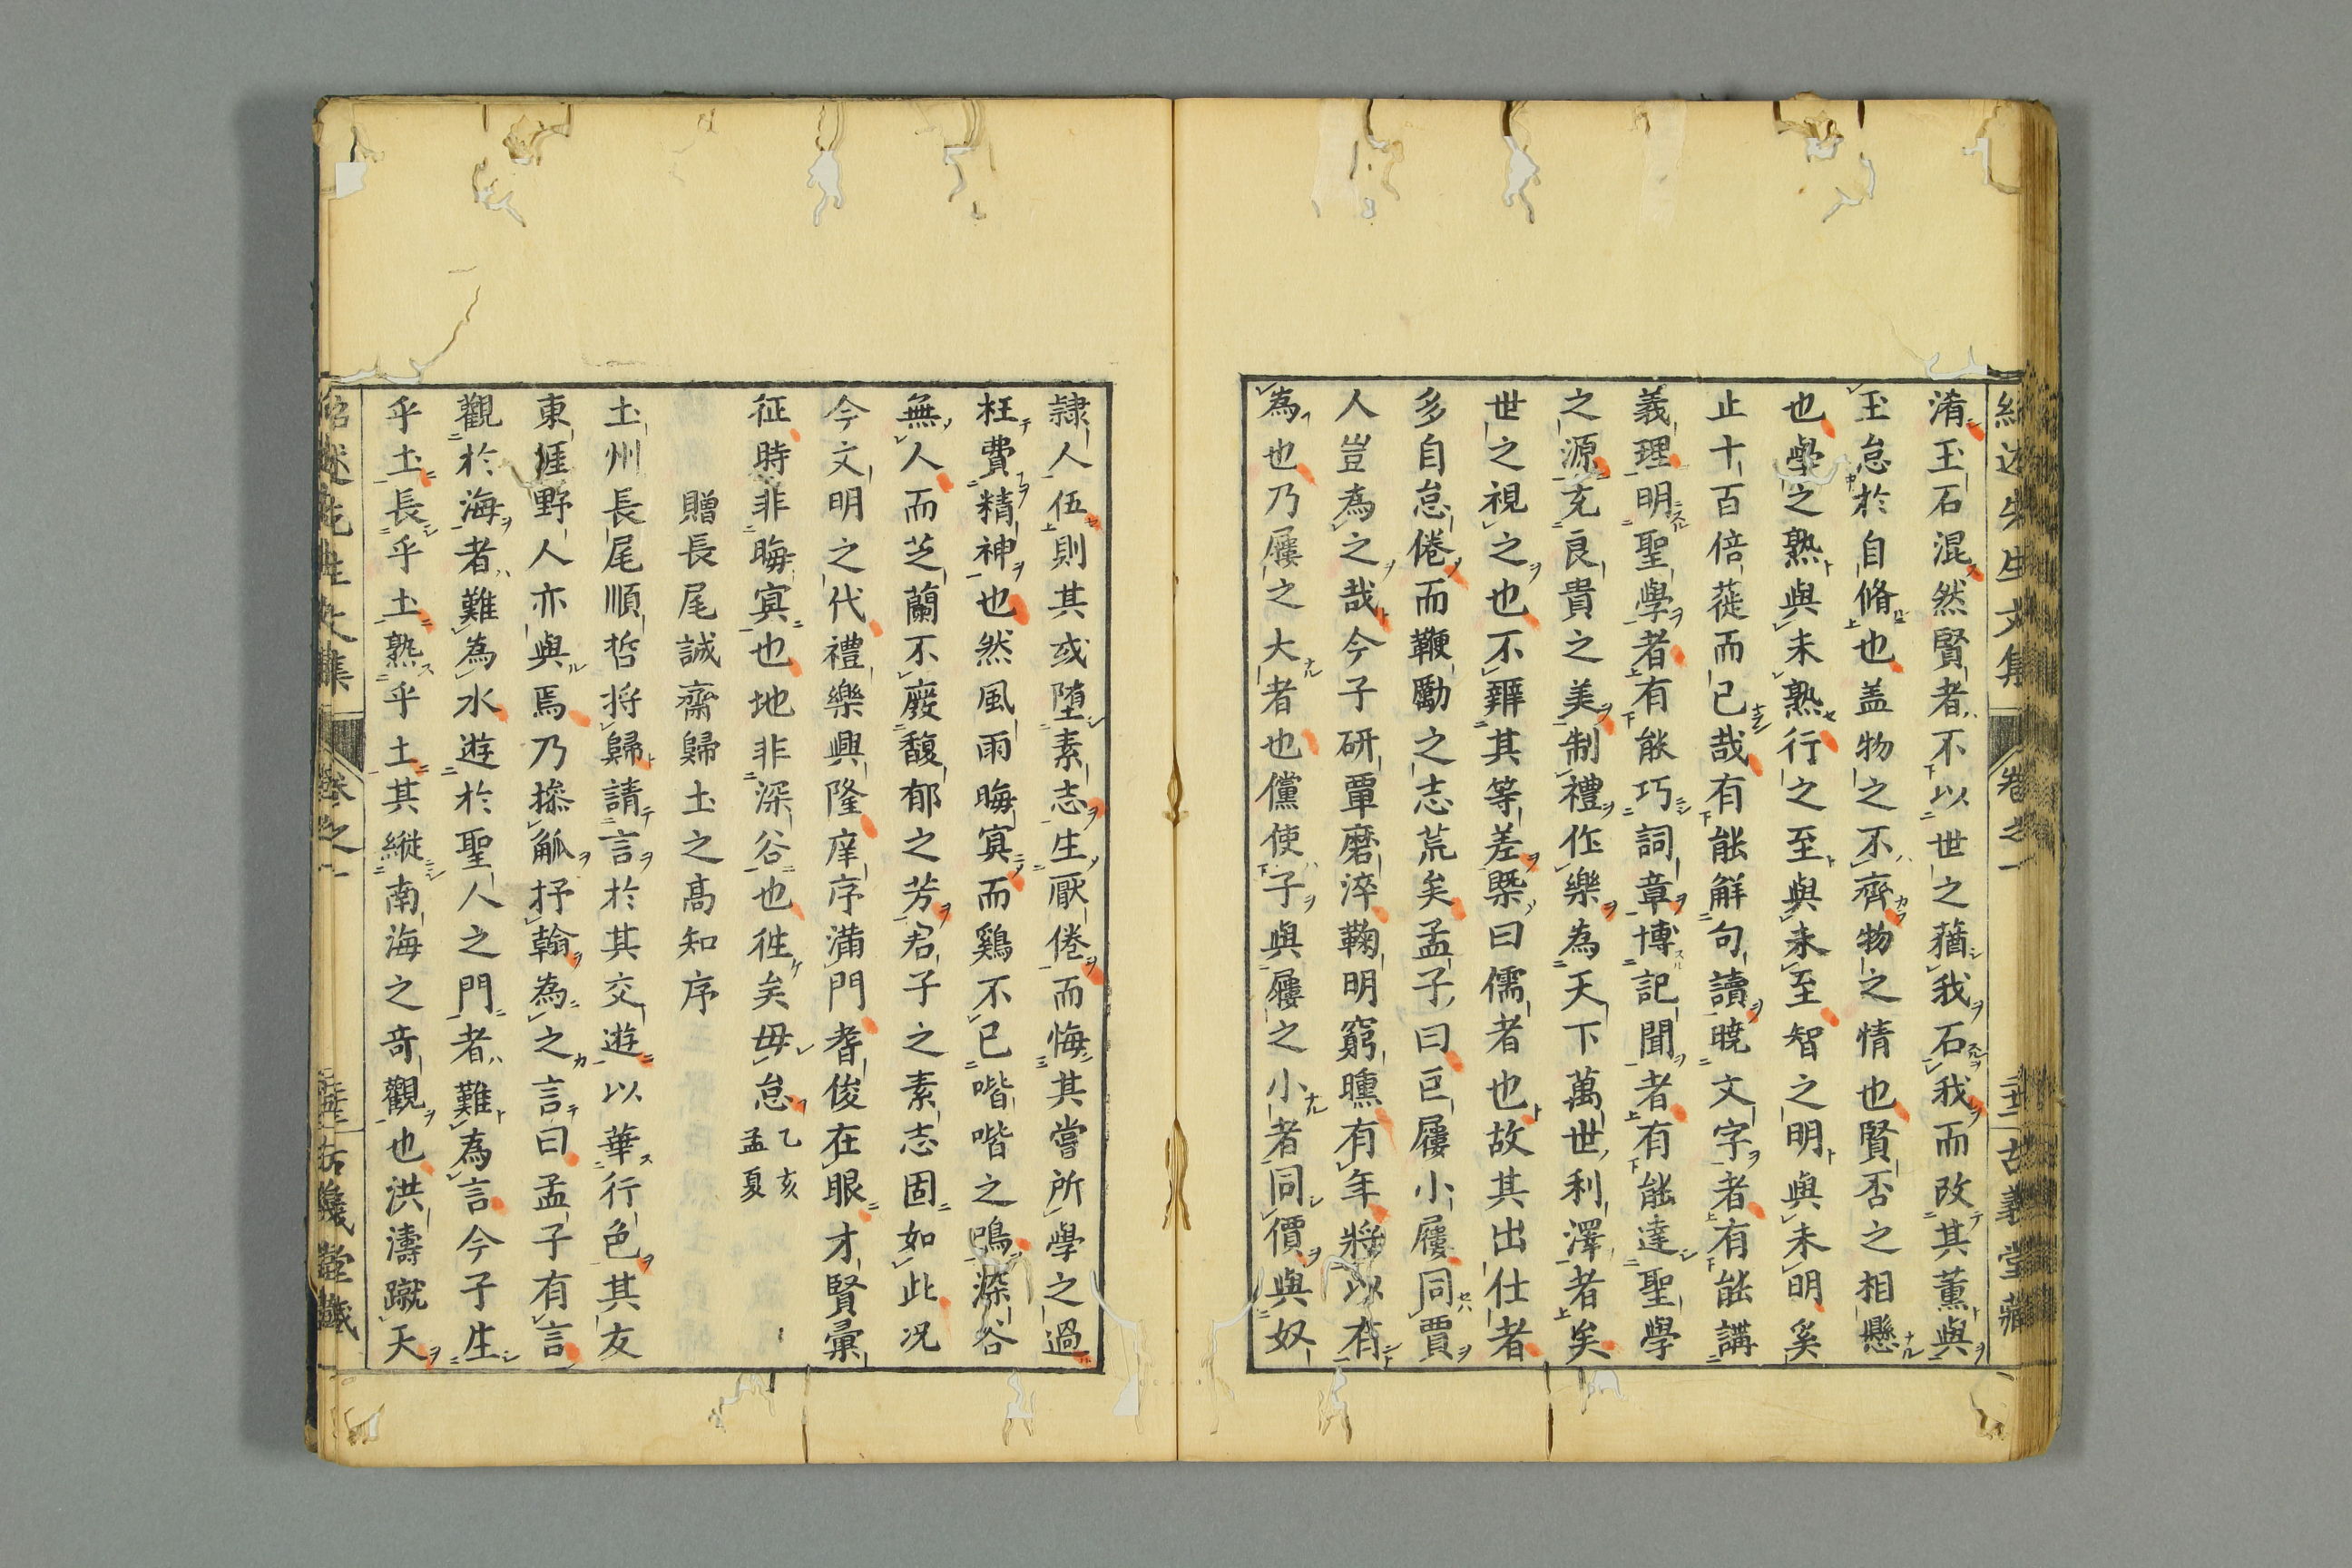 紹述先生文集 卷之一 古義堂藏
淆玉石混然賢者不以世之蕕我石我而改其薰與
玉怠於自脩也盖物之不齊物之情也賢否之相懸
也學之熟與未熟行之至與未至智之明與未明奚
止十百倍蓰而已哉有能解句讀曉文字者有能講
義理明聖學者有能巧詞章博記聞者有能達聖學
之源充良貴之美制禮作樂為天下萬世利澤者矣
世之視之也不辨其等差槩曰儒者也故其出仕者
多自怠倦而鞭勵之志荒矣孟子曰巨屨小屨同賈
人豈為之哉今子研覃磨淬鞠明窮曛有年將以有
為也乃屨之大者也儻使子與屨之小者同價與奴
隷人伍則其或堕素志生厭倦而悔其嘗所學之過
枉費精神也然風雨晦冥而鷄不已喈喈之鳴深谷
無人而芝蘭不廢馥郁之芳君子之素志固如此况
今文明之代禮樂興隆庠序滿門耆俊在眼才賢彙
征時非晦冥也地非深谷也徃矣毋怠乙亥孟夏
贈長尾誠齋歸土之高知序
土州長尾順哲將歸請言於其交遊以華行色其友
東涯野人亦與焉乃操觚抒翰為之言曰孟子有言
觀於海者難為水遊於聖人之門者難為言今子生
乎土長乎土熟乎土其縱南海之竒觀也洪濤蹴天
紹述先生文集 卷之一 古義堂藏